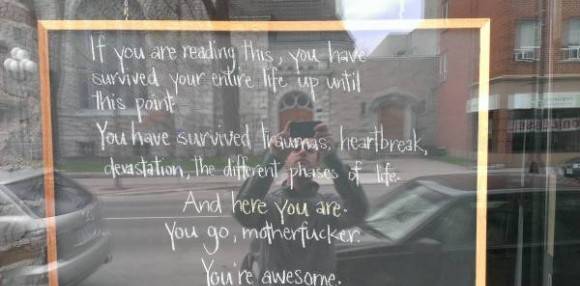 If you are reading this, you have
survived your entire life up until
this point.
You have survived traumas, heartbreak,
devastation, the different phases of life.
And here you are.
You go, motherfucker.
You're awesome.